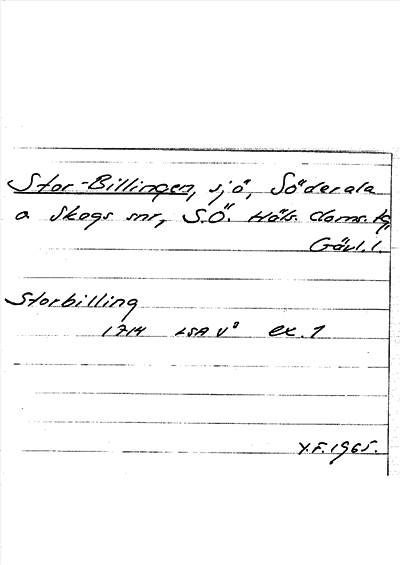 Stor-Billingen, sjö, Söderala
o Skogs snr, S.Ö. Häls. doms. tg,
Gävl. l.
Storbilling
1714 LSA V° ex. 1
Y.F. 1965.